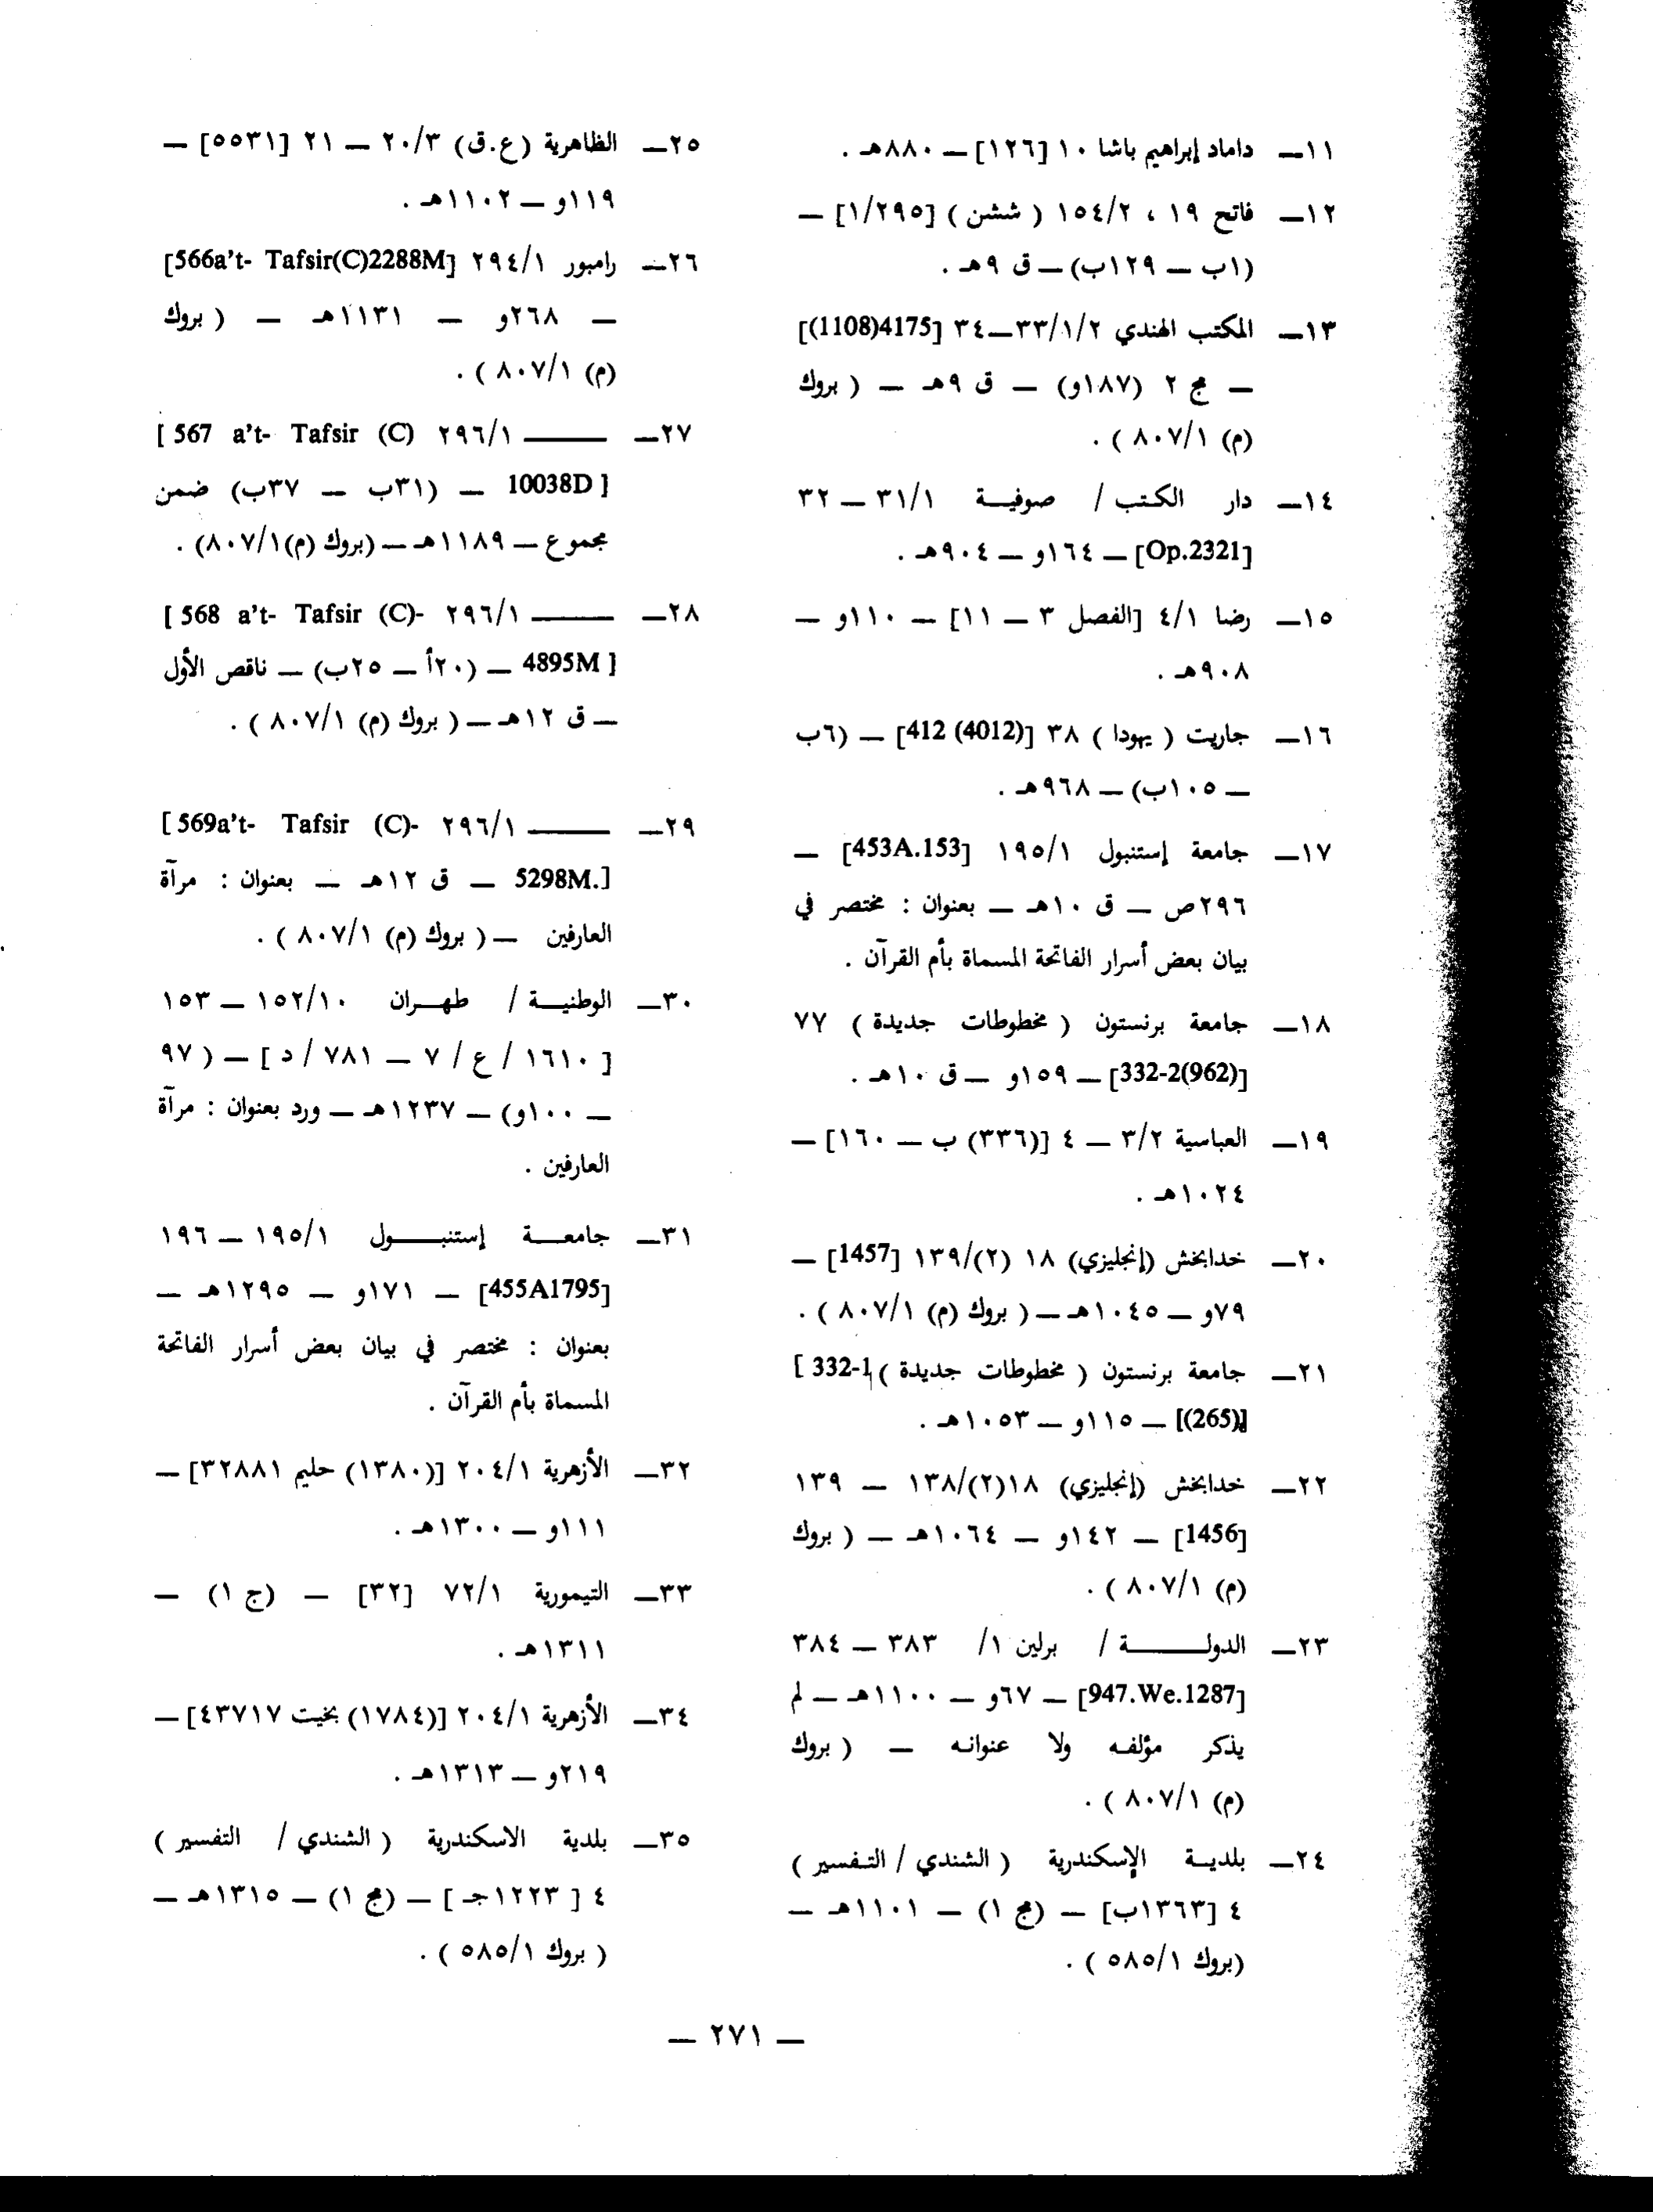 ١١ــ داماد إبراهيم باشا ١٠ [١٢٦] ــ ٨٨٠هـ .
١٢ــ فاتح ١٩ ، ١٥٤/٢ ( ششن ) [١/٢٩٥] ــ
(١ب ــ ١٢٩ب) ــ ق ٩هـ .
١٣ــ المكتب الهندي ٣٣/١/٢ــ٣٤ [4175(1108)]
ــ مج ٢ (١٨٧و) ــ ق ٩هـ ــ ( بروك
(م) ٨٠٧/١ ) .
١٤ــ دار الكتب / صوفيــة ٣١/١ ــ ٣٢
[Op.2321] ــ ١٦٤و ــ ٩٠٤هـ .
١٥ــ رضا ٤/١ [الفصل ٣ ــ ١١] ــ ١١٠و ــ
٩٠٨هـ .
١٦ــ جاريت ( يهودا ) ٣٨ [412 (4012)] ــ (٦ب
ــ ١٠٥ب) ــ ٩٦٨هـ .
١٧ــ جامعة إستنبول ١٩٥/١ [453A.153] ــ
٢٩٦ص ــ ق ١٠هـ ــ بعنوان : مختصر في
بيان بعض أسرار الفاتحة المسماة بأم القرآن .
١٨ــ جامعة برنستون ( مخطوطات جديدة ) ٧٧
[332-2(962)] ــ ١٥٩و ــ ق ١٠هـ .
١٩ــ العباسية ٣/٢ ــ ٤ [(٣٣٦) ب ــ ١٦٠] ــ
١٠٢٤هـ .
٢٠ــ خدابخش (إنجليزي) ١٨ (٢)/١٣٩ [1457] ــ
٧٩و ــ ١٠٤٥هـ ــ ( بروك (م) ٨٠٧/١ ) .
٢١ــ جامعة برنستون ( مخطوطات جديدة ) [332-1
(265)] ــ ١١٥و ــ ١٠٥٣هـ .
٢٢ــ خدابخش (إنجليزي) ١٨(٢)/١٣٨ ــ ١٣٩
[1456] ــ ١٤٢و ــ ١٠٦٤هـ ــ ( بروك
(م) ٨٠٧/١ ) .
٢٣ــ الدولــــة / برلين ١/ ٣٨٣ ــ ٣٨٤
[947.We.1287] ــ ٦٧و ــ ١١٠٠هـ ــ لم
يذكر مؤلفه ولا عنوانه ــ ( بروك
(م) ٨٠٧/١ ) .
٢٤ــ بلديــة الإسكندرية ( الشندي / التفسير )
٤ [١٣٦٣ب] ــ (مج ١) ــ ١١٠١هـ ــ
(بروك ٥٨٥/١ ) .
٢٥ــ الظاهرية (ع.ق) ٢٠/٣ ــ ٢١ [٥٥٣١] ــ
١١٩و ــ ١١٠٢هـ .
٢٦ــ رامبور ٢٩٤/١ [566a't- Tafsir(C)2288M]
ــ ٢٦٨و ــ ١١٣١هـ ــ ( بروك
(م) ٨٠٧/١ ) .
٢٧ــ ــــــ ٢٩٦/١ [ 567 a't- Tafsir (C)
10038D ] ــ (٣١ب ــ ٣٧ب) ضمن
مجموع ــ ١١٨٩هـ ــ (بروك (م)٨٠٧/١) .
٢٨ــ ــــــ ٢٩٦/١ [ 568 a't- Tafsir (C)-
4895M ] ــ (٢٠أ ــ ٢٥ب) ــ ناقص الأول
ــ ق ١٢هـ ــ ( بروك (م) ٨٠٧/١ ) .
٢٩ــ ــــــ ٢٩٦/١ [ 569a't- Tafsir (C)-
5298M.] ــ ق ١٢هـ ــ بعنوان : مرآة
العارفين ــ ( بروك (م) ٨٠٧/١ ) .
٣٠ــ الوطنيــة / طهــران ١٥٢/١٠ ــ ١٥٣
[ ١٦١٠ / ع / ٧ ــ ٧٨١ / د ] ــ ( ٩٧
ــ ١٠٠و) ــ ١٢٣٧هـ ــ ورد بعنوان : مرآة
العارفين .
٣١ــ جامعــة إستنبــــول ١٩٥/١ ــ ١٩٦
[455A1795] ــ ١٧١و ــ ١٢٩٥هـ ــ
بعنوان : مختصر في بيان بعض أسرار الفاتحة
المسماة بأم القرآن .
٣٢ــ الأزهرية ٢٠٤/١ [(١٣٨٠) حليم ٣٢٨٨١] ــ
١١١و ــ ١٣٠٠هـ .
٣٣ــ التيمورية ٧٢/١ [٣٢] ــ (ج ١) ــ
١٣١١هـ .
٣٤ــ الأزهرية ٢٠٤/١ [(١٧٨٤) بخيت ٤٣٧١٧] ــ
٢١٩و ــ ١٣١٣هـ .
٣٥ــ بلدية الاسكندرية ( الشندي / التفسير )
٤ [ ١٢٢٣جـ ] ــ (مج ١) ــ ١٣١٥هـ ــ
( بروك ٥٨٥/١ ) .
ــ ٢٧١ ــ